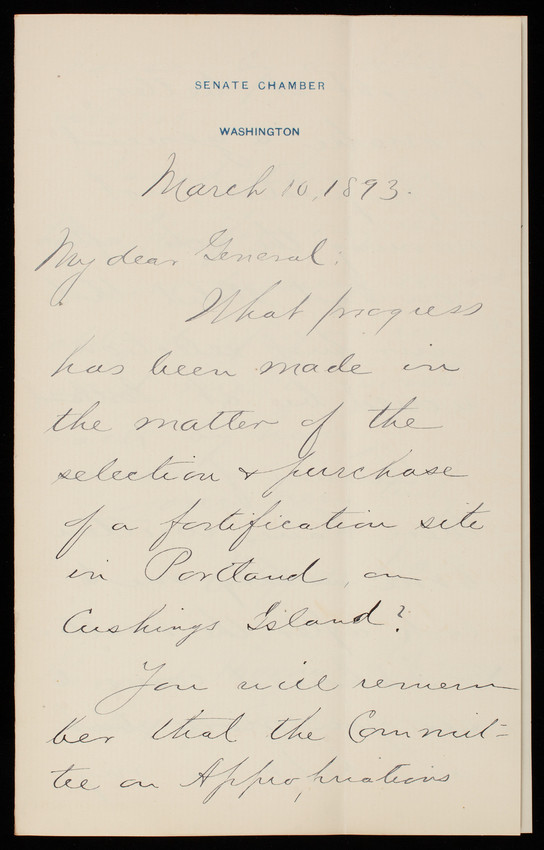 SENATE CHAMBER
WASHINGTON
March 10, 1893.
My dear General:
What progress
has been made in
the matter of the
selection & purchase
of a fortification site
in Portland, on
Cushings Island?
You will remem
ber that the Commit=
tee on Appropriations